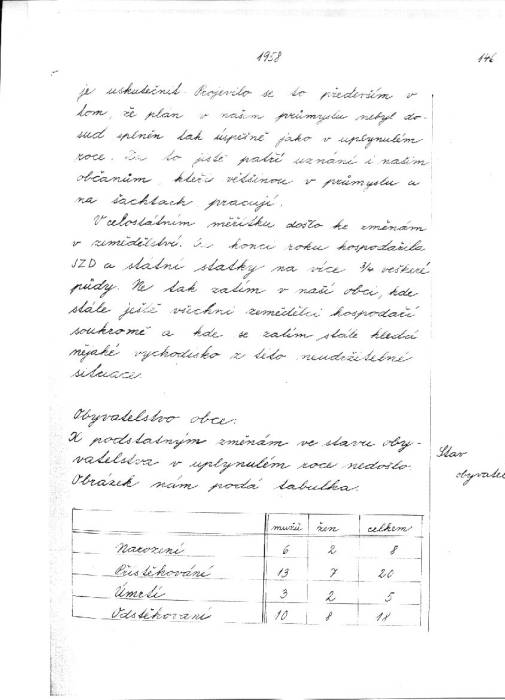 1958
146
je uskutečnit. Projevilo se to především v
tom, že plán v našem průmyslu nebyl do-
sud splněn tak úspěšně jako v uplynulém
roce. Za to jistě patří uznání i našim
občanům, kteří většinou v průmyslu a
na šachtách pracují.
V celostátním měřítku došlo ke změnám
v zemědělství. Ke konci roku hospodařila
JZD a státní statky na více 3/4 veškeré
půdy. Ne tak zatím v naší obci, kde
stále ještě všichni zemědělci hospodaří
soukromě a kde se zatím stále hledá
nějaké východisko z této neudržitelné
situace.
Obyvatelstvo obce.
K podstatným změnám ve stavu oby-
vatelstva v uplynulém roce nedošlo.
Obrázek nám podá tabulka.
Stav
obyvatel
mužů žen celkem
Narození 6 2 8
Přistěhování 13 7 20
Úmrtí 3 2 5
Odstěhovaní 10 8 18